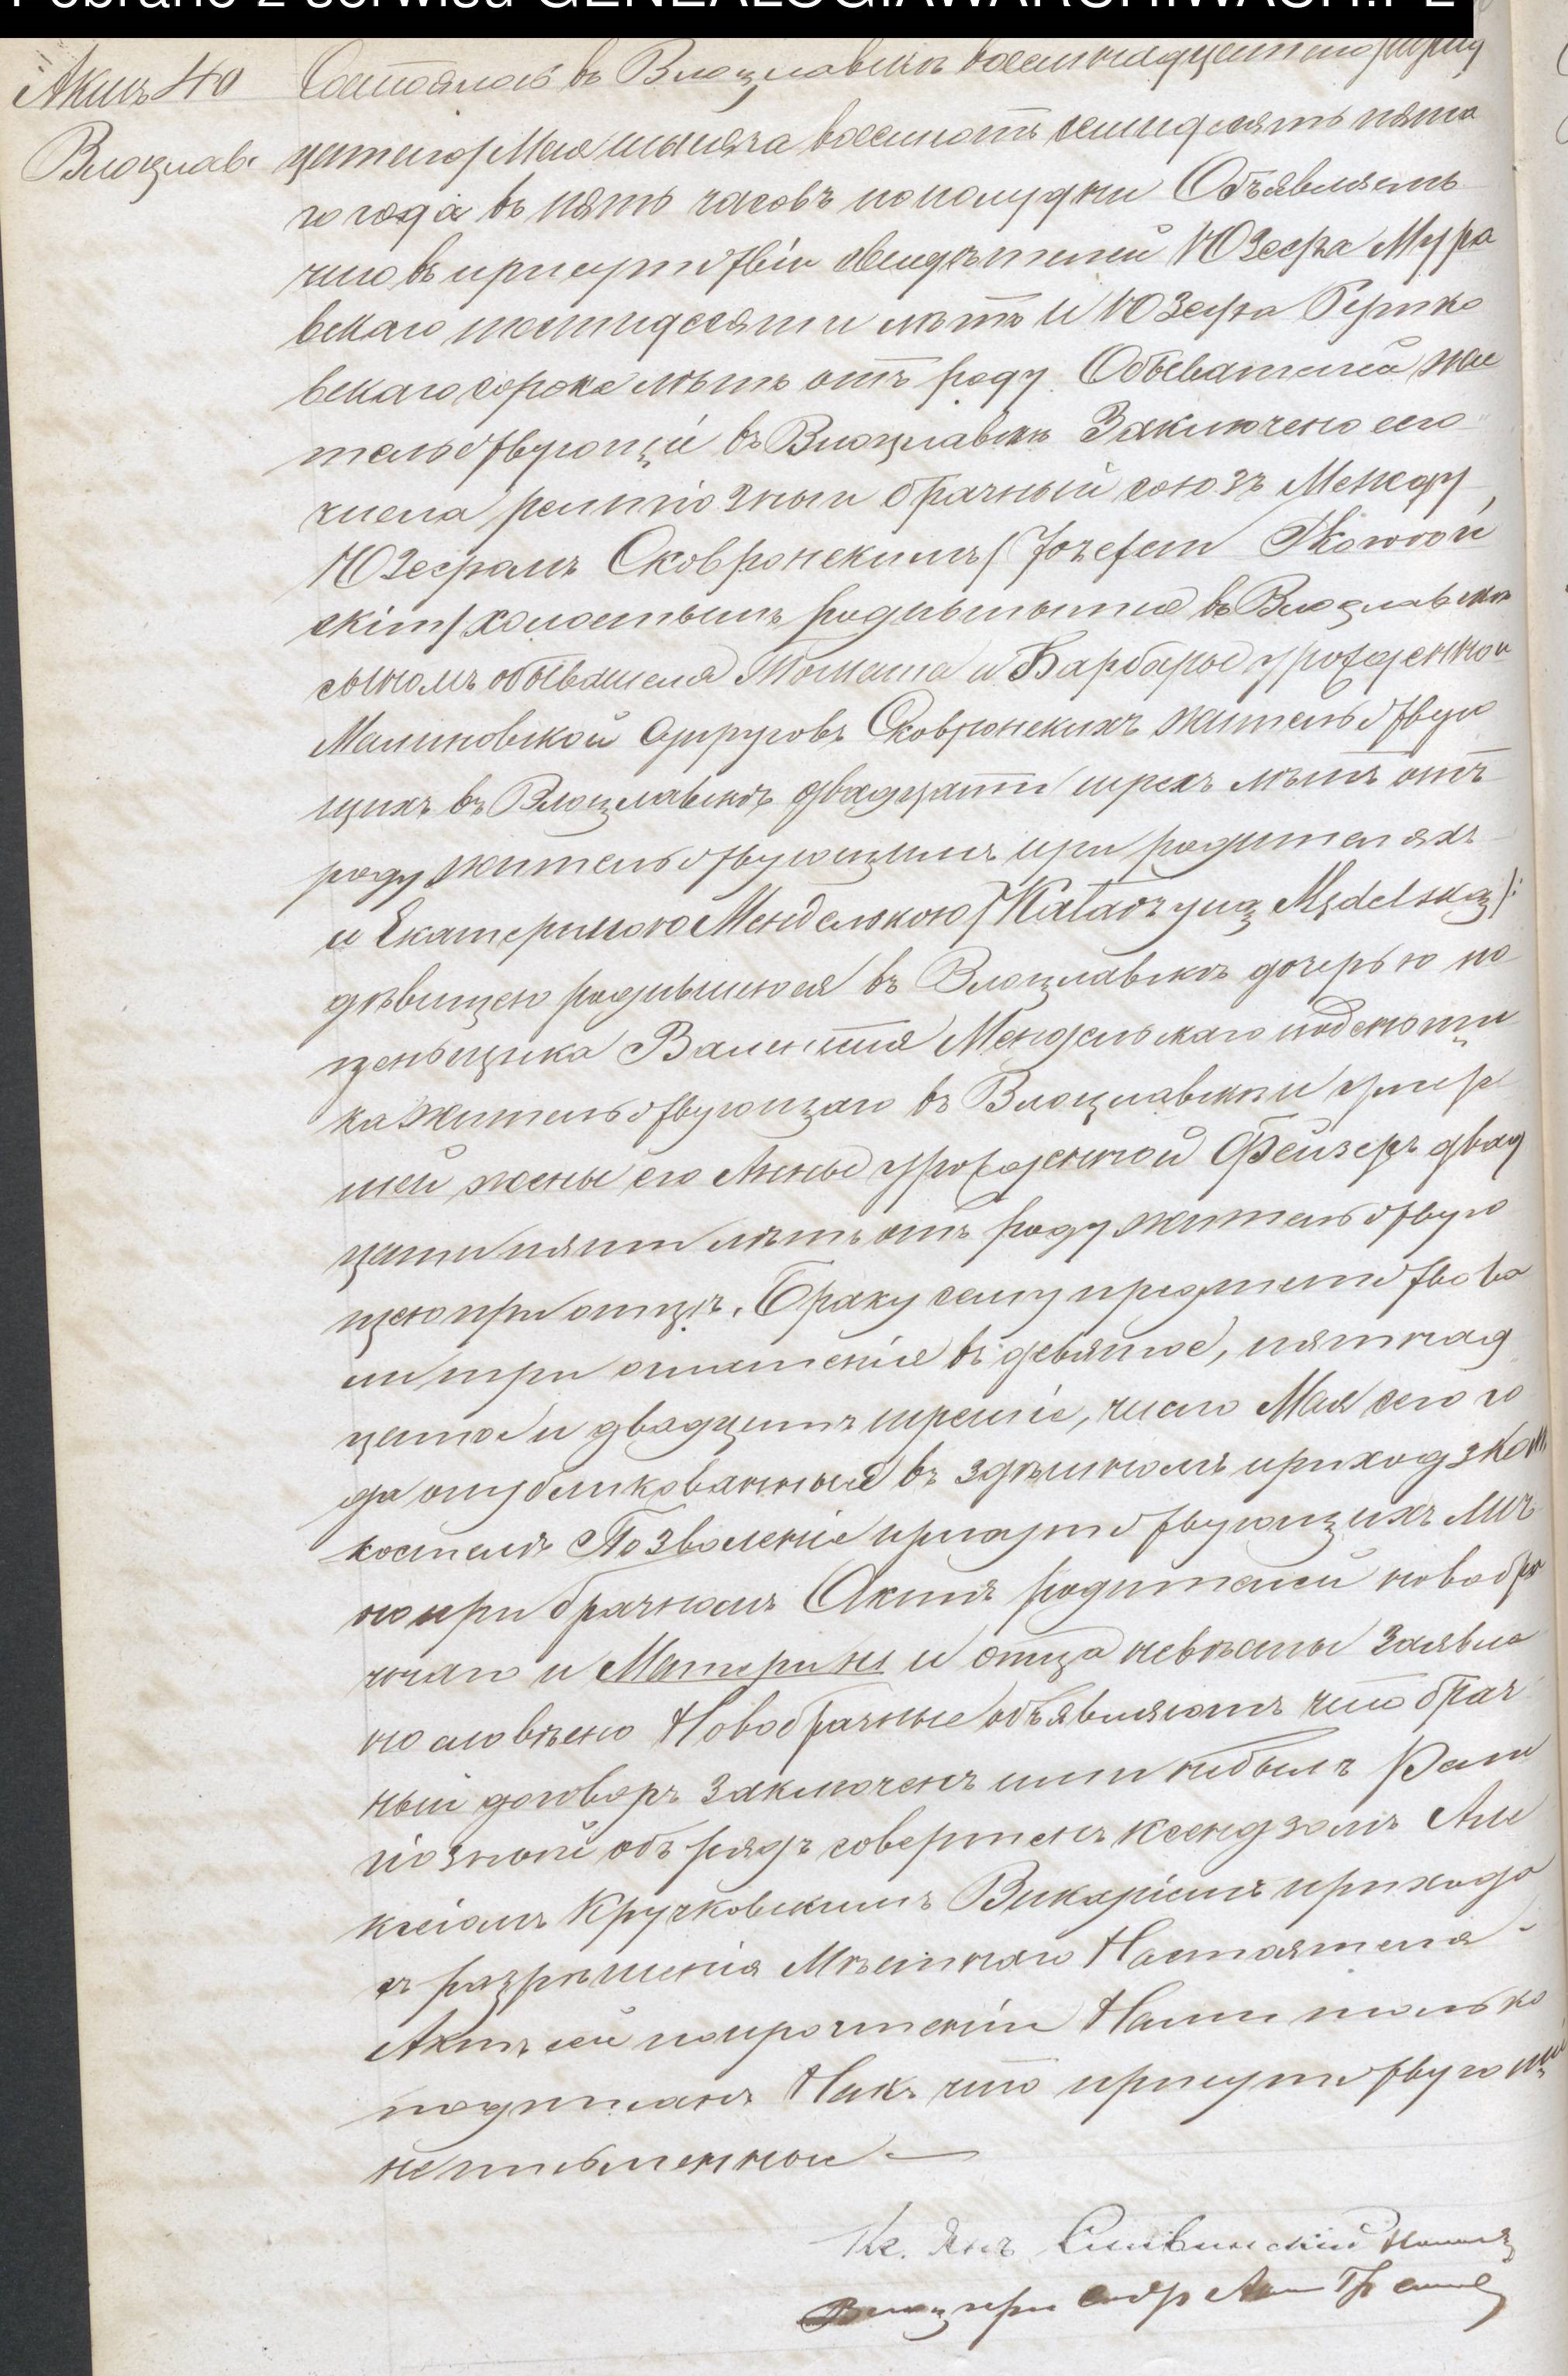 Pobrano z serwisu GENEALOGIAWARCHIWACH.PL
Актъ 40
Влоцлав.
Состоялось въ Влоцлавскѣ восемнадцатаго/тридц
цатаго/Мая мѣсяца восемсотъ семидесятъ пята
го года въ пять часовъ пополудни Объявляемъ
что въ присутствіи свидѣтелей Юзефа Мура
вскаго шестидесяти лѣтъ и Юзефа Рутко
вскаго сорока лѣтъ отъ роду Обывателей жи
тельствующій въ Влоцлавскѣ Заключено сего
числа религіозный брачный союзъ Между
Юзефамъ Сковронскимъ/Józefem Skowroń
skim/холостымъ родившымся въ Влоцлавскѣ
сыномъ обывателя Томаша и Барбары урожденной
Малиновской супруговъ Сковронскихъ жительствую
щихъ въ Влоцлавскѣ двадцати трехъ лѣтъ отъ
роду жительствующимъ при родителяхъ
и Екатериною Мендельскою/Katarzyną Mędelską/:
дѣвицею родившеюся въ Влоцлавскѣ дочерью по
деньщика Валентія Мендельскаго поденьщи
ка жительствующаго въ Влоцлавскѣ и умер
шей жены его Анны урожденной Фейзеръ двад
цати пяти лѣтъ отъ роду жительствую
щею при отцѣ. Браку сему предшествова
ли три оглашенія въ девятое, пятнад
цатое и двадцать третіе, число Мая сего го
да опубликованныя въ здѣшномъ приходзкомъ
костелѣ Позволеніе присутствующихъ лич
но при брачномъ Актѣ родителей новобра
чнаго и Матери ны и отца невѣсты Заявле
но словесно Новобрачные объявляютъ что брач
ный договоръ заключенъ ими небылъ Рели
гіозный обърядъ совершенъ ксендзомъ Але
ксіомъ Кручковскимъ Викаріемъ прихода
съ разрѣшенія Мѣстнаго Настоятеля
Актъ сей попрочтеніи Нами только
подписанъ Накъ что присутствующіи
неписьменныи —
Кс. Янъ